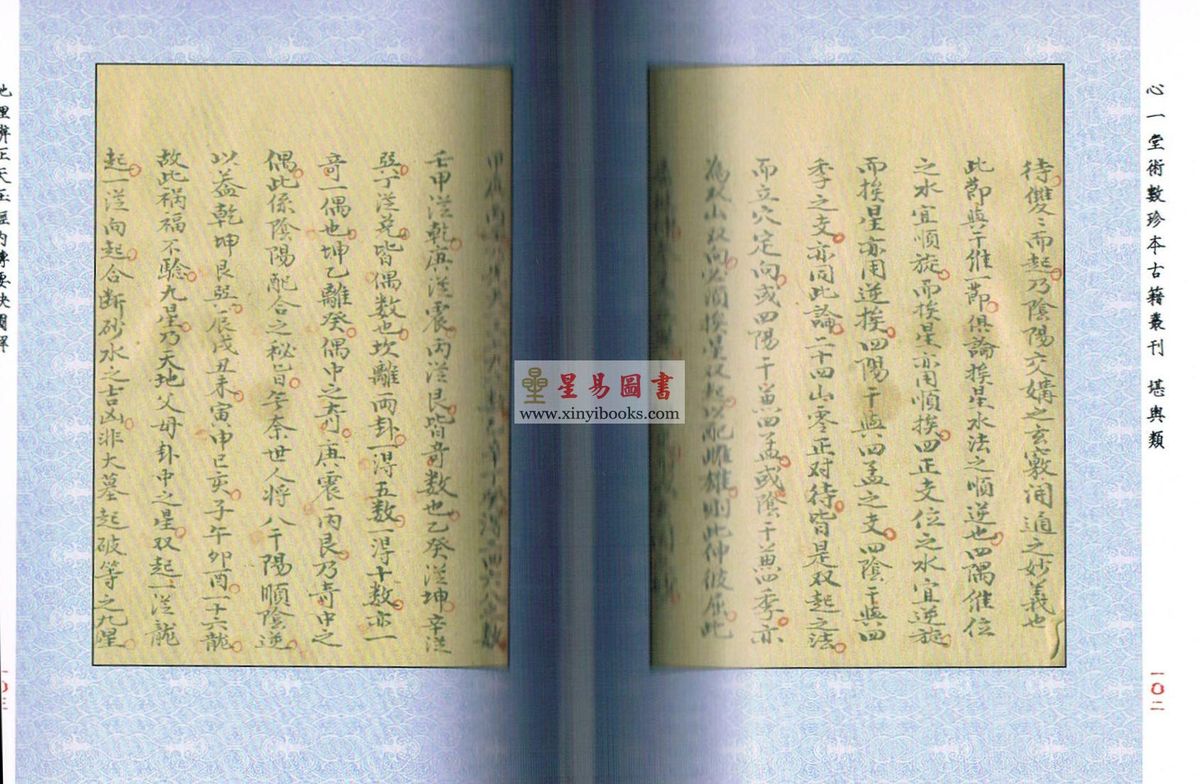 心一堂術數珍本古籍叢刊 堪輿類
一〇二
待雙二而起乃陰陽交媾之玄竅洞通之妙義也
此節與干維一節俱論挨星水法之順逆也四隅維位
之水宜順旋而挨星亦用順挨四正支位之水宜逆旋
而挨星亦用逆挨四陽干與四孟之支四陰干與四
季之支亦同此論二十四山零正对待皆是双起之法
而立穴定向或四陽干兼四孟或陰干兼四季亦
為双山双向必須挨星双起以配雌雄則此伸彼屈此
壬甲從乾庚從震丙從艮皆奇数也乙癸從坤辛從
巽丁從兌皆偶数也坎離兩卦一得五数一得十数亦一
奇一偶也坤乙離癸偶中之奇庚震丙艮乃奇中之
偶此係陰陽配合之秘旨年奈世人將八干陽順陰逆
以益乾坤艮巽辰戌丑未寅申巳亥子午卯酉一十六龍
故此禍福不驗九星乃天地父母卦中之星双起一從龍
起一從向起合斷砂水之吉凶非大墓起破等之九星
地理辨正天玉經內傳要訣圖解
一〇三
星易圖書
www.xinyibooks.com